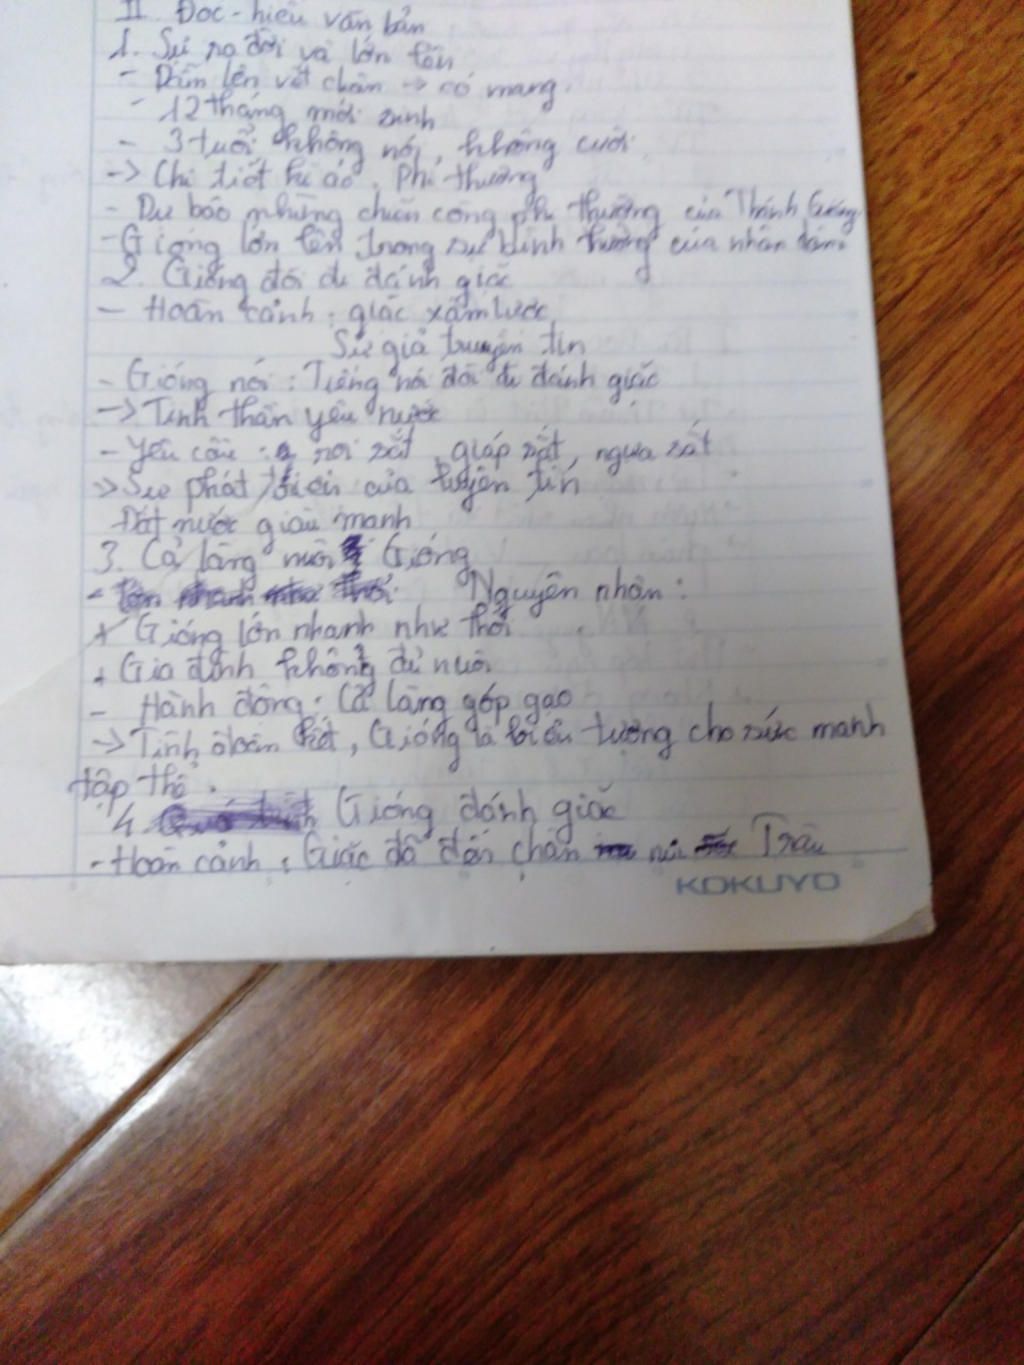 II. Đọc - hiểu văn bản
1. Sự ra đời và lớn lên
- Dẫm lên vết chân -> có mang.
- 12 tháng mới sinh
- 3 tuổi không nói, không cười
-> Chi tiết kì ảo, phi thường
- Dự báo những chiến công phi thường của Thánh Gióng
- Gióng lớn lên trong sự bình thường của nhân dân
2. Gióng đòi đi đánh giặc
- Hoàn cảnh: giặc xâm lược
Sứ giả truyền tin
- Gióng nói: Tiếng nói đòi đi đánh giặc
-> Tinh thần yêu nước
- Yêu cầu: roi sắt, giáp sắt, ngựa sắt
-> Sự phát của tin
Đất nước giàu mạnh
3. Cả làng nuôi Gióng
- Nguyên nhân:
+ Gióng lớn nhanh như thổi
+ Gia đình không đủ nuôi
- Hành động: Cả làng góp gạo
-> Tình đoàn kết, Gióng là biểu tượng cho sức mạnh
tập thể.
4. Gióng đánh giặc
- Hoàn cảnh: Giặc đã đến chân núi Trâu
KOKUYO